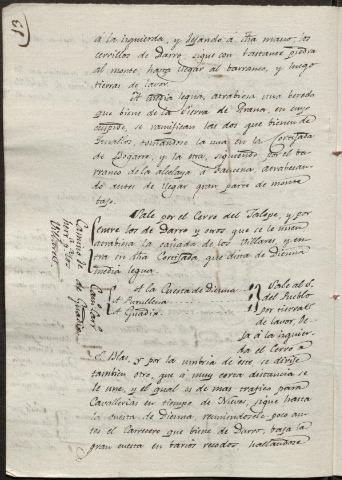 13
á la izquierda, y dejando á dha mano, los
cerrillos de Darro, sigue con bastante piedra
al monte, hasta llegar al barranco, y luego
tierras de labor.
A media legua, atrabiesa una bereda
que biene de la Sierra de Arana, en cuyo
se ramifican las dos que bienen de
la una en la Cortijada
de Bogarre, y la otra, siguiendo por el ba-
rranco de la atalaya á atrabesan-
do antes de llegar gran parte de monte
bajo.
Sale por el Cerro del Jalope, y por
entre los de Darro y otro que se le unen
atrabiesa la cañada de los Villares, y en-
tra en dha Cortijada, que dista de Diezma
media legua.
Camino de
herr.ª por los
Villares.
Cavllar
de Guadix
A la Cuesta de Diezma
A Purullena
A Guadix
Sale al E.
del Pueblo
por tierras
de lavor, de-
ja á la izquier-
da el Cerro de
S. Blas, y por la umbria de este se dirije
tambien otro, que á muy corta distancia se
le une, y el qual es de mas trafico para
Cavallerias en tiempo de Nieves, sigue hasta
la cuesta de Diezma, reuniendosele poco an-
tes el Carretero que biene de Darro, baja la
gran cuesta en barios recodos hallandose